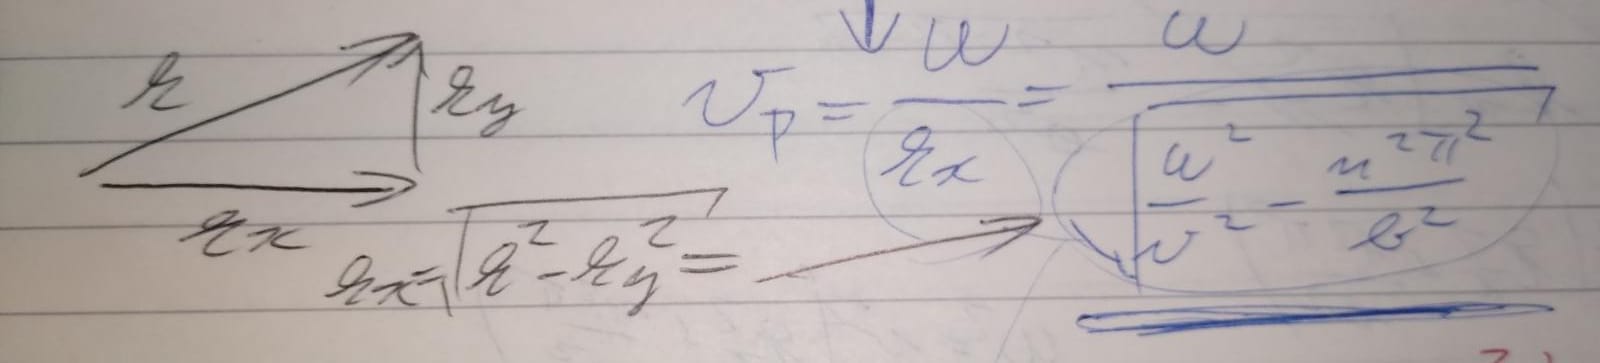 k
k_y
k_x
k_x = √(k² - k_y²) =
v_p = ω/k_x = ω/√(ω²/v² - n²π²/b²)